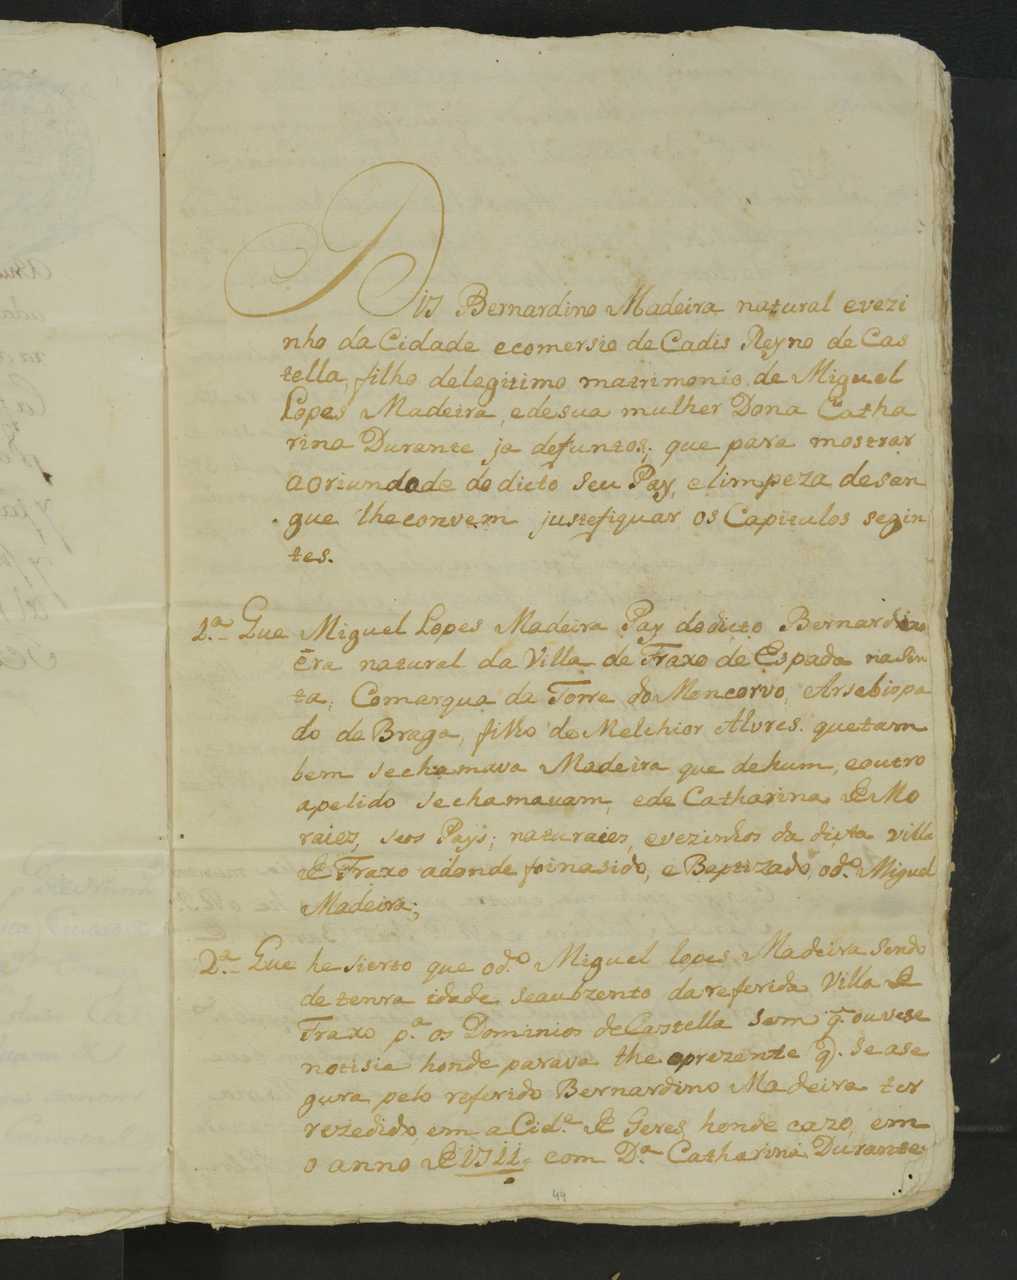 Dis Bernardino Madeira natural evezi
nho da Cidade ecomersio de Cadis Reyno de Cas
tella, filho delegitimo matrimonio, de Miguel
Lopes Madeira, edesua mulher Dona Catha
rina Durante ja defuntos; que para mostrar
aoriundade dodicto seu Pay, elimpeza desan
gue lheconvem justefiquar os Capitulos segin
tes.
1.ª Que Miguel Lopes Madeira Pay dodicto Bernardino
Era natural da Villa de Fraxo de Espada nasin
ta, Comarqua da Torre do Moncorvo, Arsebiopa
do de Braga, filho de Melchior Alvres. quetam
bem sechamava Madeira que dehum, eoutro
apelido sechamavam, ede Catharina de Mo
raiez, seos Pays; naturaies, evezinhos da dicta villa
de Fraxo adonde foinasido, e Baptizado, od.º Miguel
Madeira;
2.ª Que he sierto que od.º Miguel lopes Madeira sendo
detenra idade seaubzento dareferida Villa de
Fraxo p.ª os Dominios deCastella sem q̃ ouvese
notisia honde parava the oprezente q̃. se ase
gura pelo referido Bernardino Madeira ter
rezedido, em a Cid.e de Geres honde cazo, em
o anno de 1711, com D.ª Catharina Durante
49